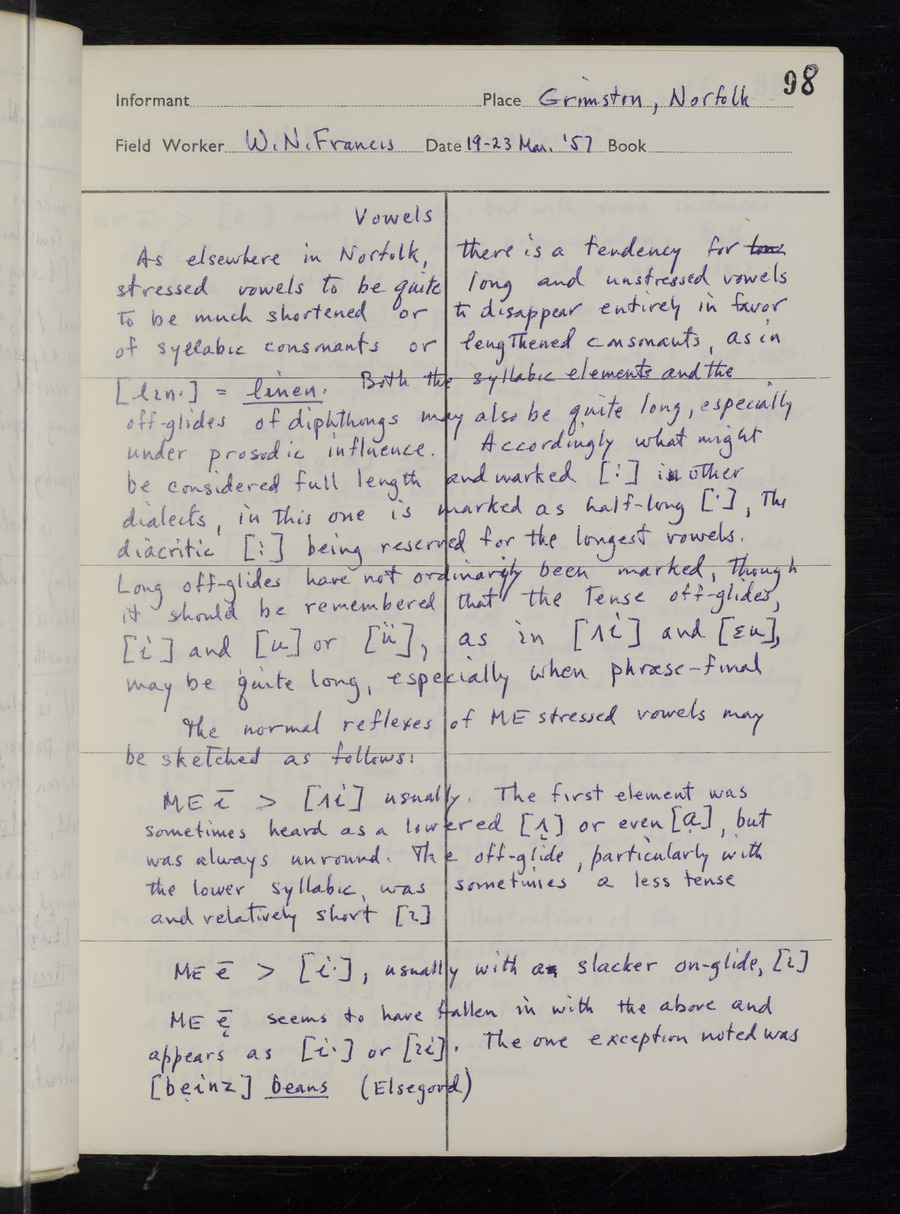 98
Informant Place Grimston, Norfolk
Field Worker W. N. Francis Date 19-23 Mar. '57 Book
Vowels
As elsewhere in Norfolk, there is a tendency for
stressed vowels to be quite long and unstressed vowels
to be much shortened or to disappear entirely in favor
of syllabic consonants or lengthened consonants, as in
[lɪn·] = linen. Both the syllabic elements and the
off-glides of diphthongs may also be quite long, especially
under prosodic influence. Accordingly what might
be considered full length and marked [:] in other
dialects, in this one is marked as half-long [·], the
diacritic [:] being reserved for the longest vowels.
Long off-glides have not ordinarily been marked, though
it should be remembered that the tense off-glides,
[i] and [u] or [ü], as in [ʌi] and [ɛu],
may be quite long, especially when phrase-final
The normal reflexes of ME stressed vowels may
be sketched as follows:
ME ī > [ʌi] usually. The first element was
sometimes heard as a lowered [ʌ̞] or even [ɑ̣], but
was always unround. The off-glide, particularly with
the lower syllabic, was sometimes a less tense
and relatively short [ɪ]
ME ē > [i·], usually with a slacker on-glide, [ɪ]
ME ę̄ seems to have fallen in with the above and
appears as [i·] or [ɪi]. The one exception noted was
[bẹinz] beans (Elsegood)